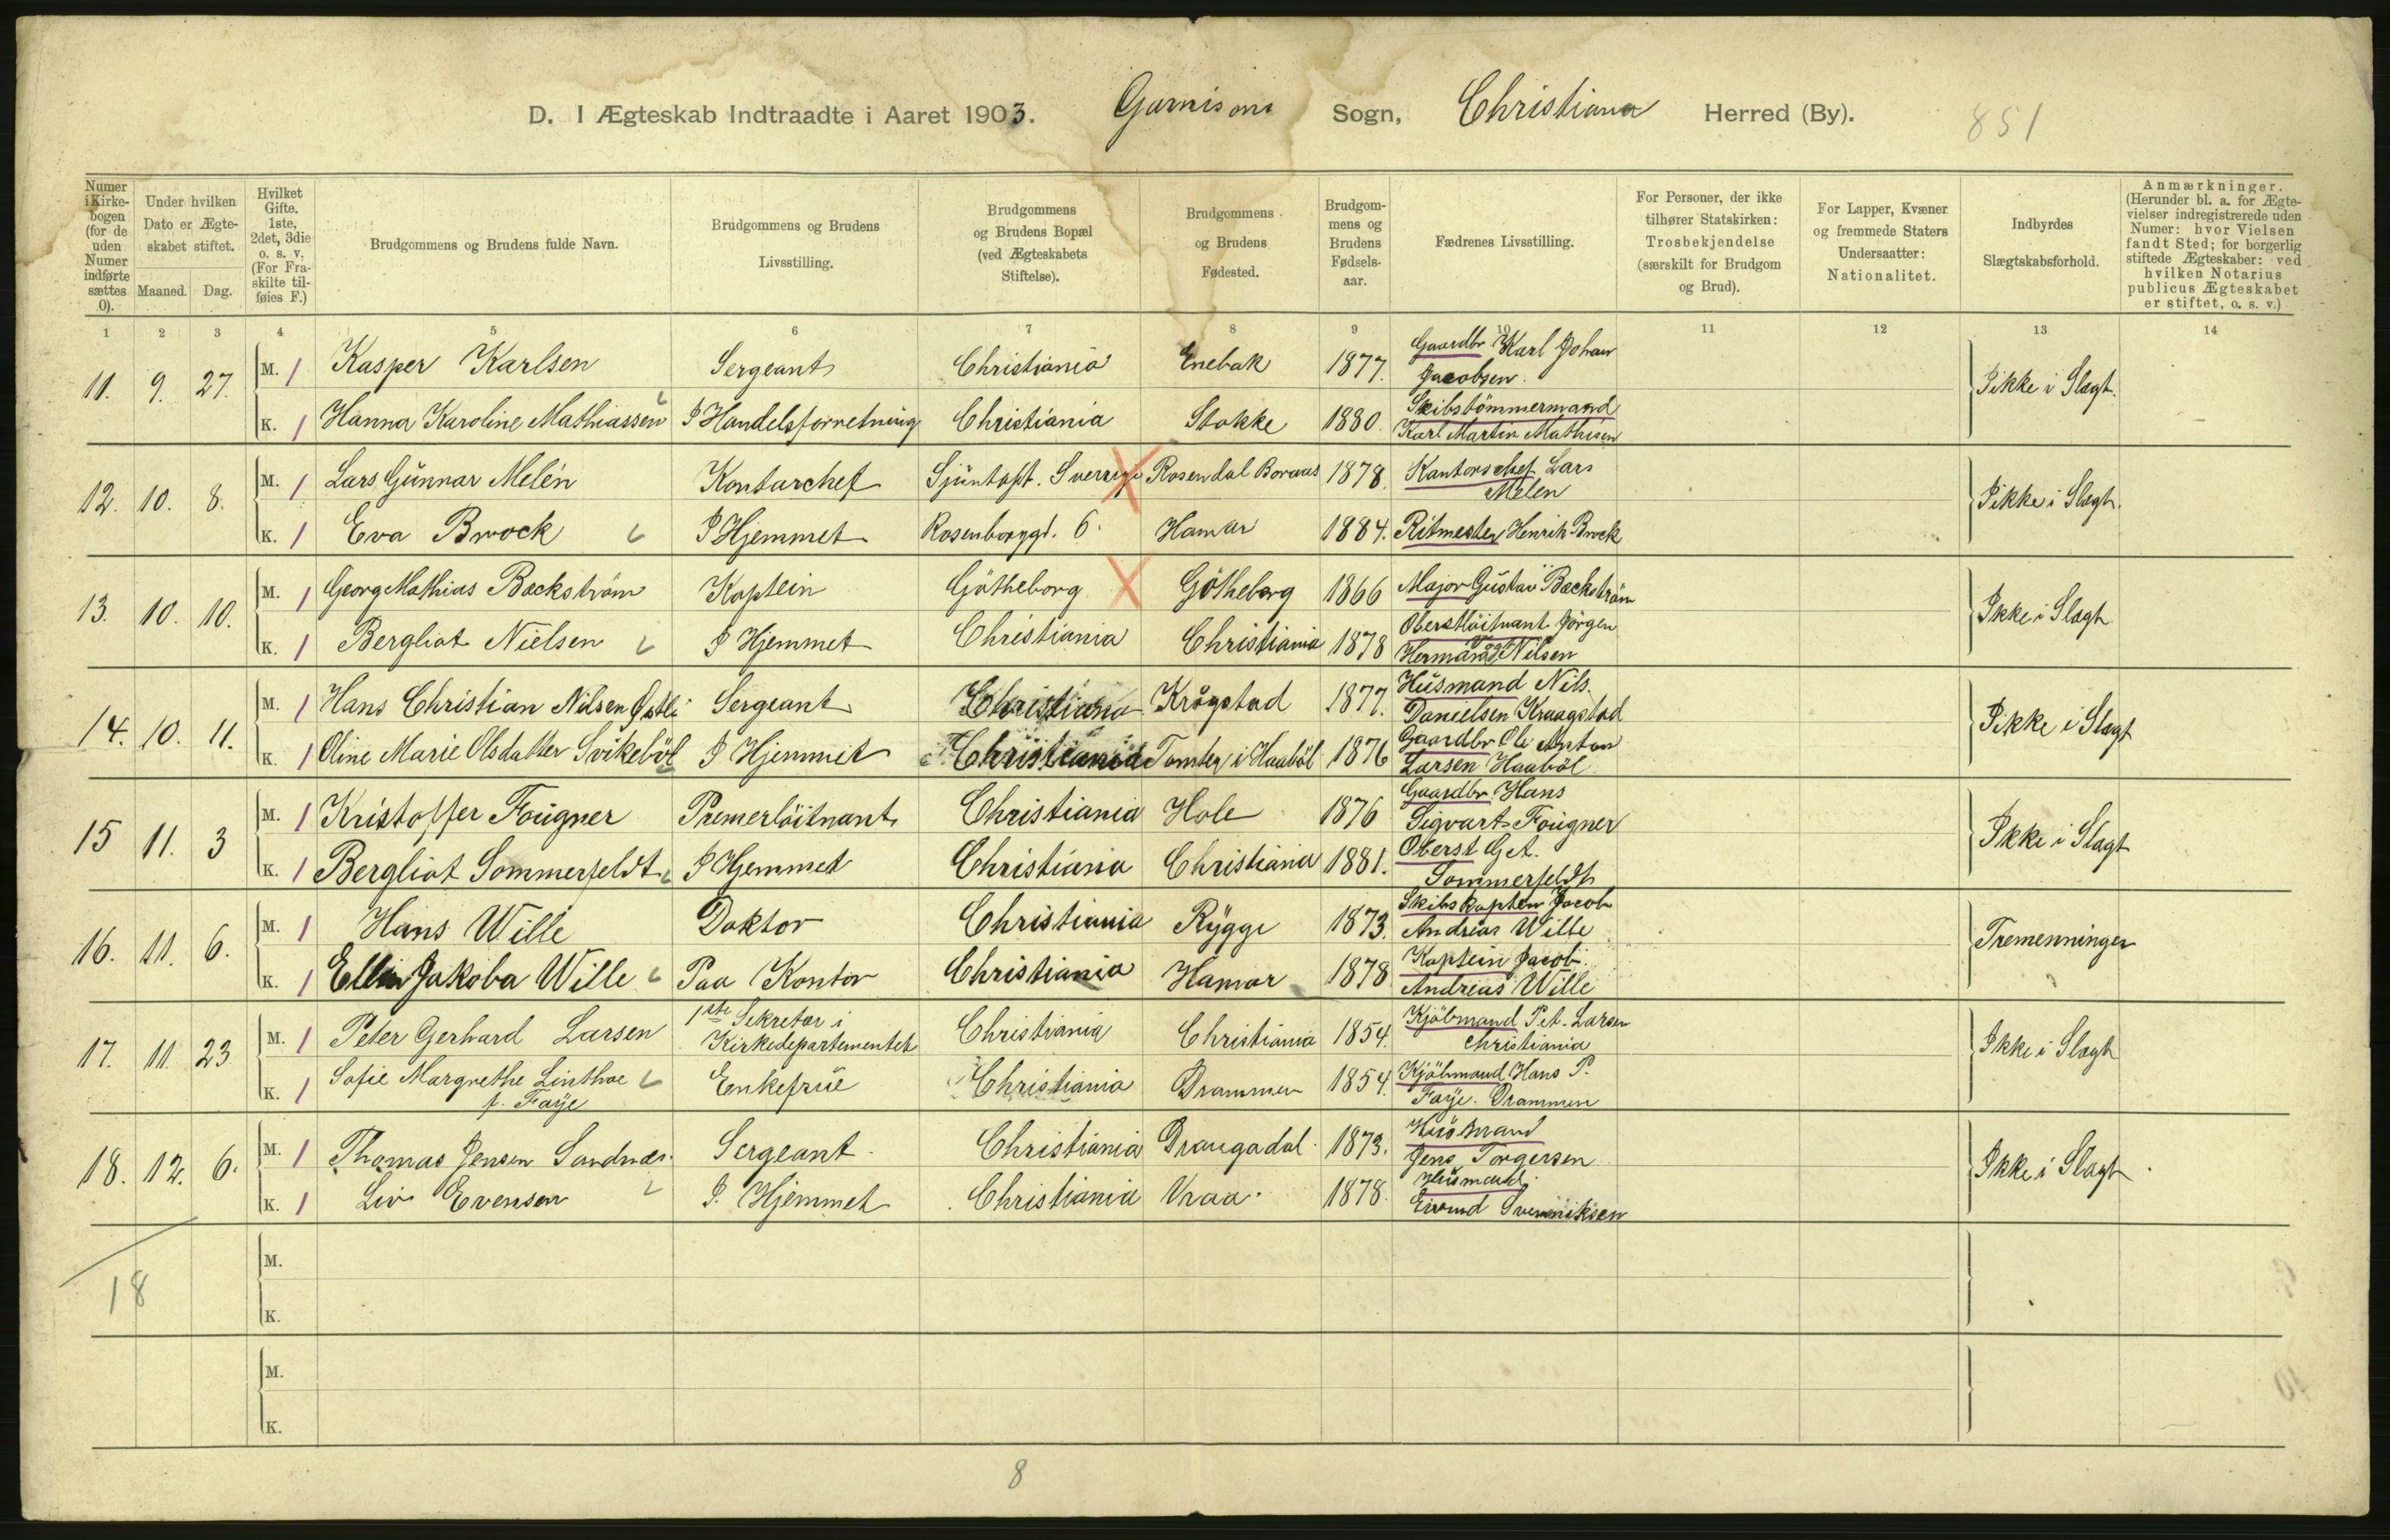 D. I Ægteskab Indtraadte i Aaret 1903. Garnisons Sogn, Christiania Herred (By). 851
Numer i Kirke-bogen (for de uden Numer indførte sættes 0).
Under hvilken Dato er Ægte-skabet stiftet.
Maaned. Dag.
Hvilket Gifte. 1ste, 2det, 3die o. s. v. (For Fra-skilte til-føies F.)
Brudgommens og Brudens fulde Navn.
Brudgommens og Brudens Livsstilling.
Brudgommens og Brudens Bopæl (ved Ægteskabets Stiftelse).
Brudgommens og Brudens Fødested.
Brudgom-mens og Brudens Fødsels-aar.
Fædrenes Livsstilling.
For Personer, der ikke tilhører Statskirken: Trosbekjendelse (særskilt for Brudgom og Brud).
For Lapper, Kvæner og fremmede Staters Undersaatter: Nationalitet.
Indbyrdes Slægtskabsforhold.
Anmærkninger. (Herunder bl. a. for Ægte-vielser indregistrerede uden Numer: hvor Vielsen fandt Sted; for borgerlig stiftede Ægteskaber: ved hvilken Notarius publicus Ægteskabet er stiftet, o. s. v.)
1 2 3 4 5 6 7 8 9 10 11 12 13 14
11. 9. 27. M. 1 Kasper Karlsen Sergeant Christiania Enebak 1877. Gaardbr Karl Johan Jacobsen. Ikke i Slagt.
K. 1 Hanna Karoline Mathiassen I Handelsforretning Christiania Stokke 1880. Skibstömmermand Karl Martin Mathisen
12. 10. 8. M. 1 Lars Gunnar Melén Kontorchef Sjuntoft. Sverrige Rosendal Boraas 1878. Kontorschef Lars Melen Ikke i Slagt.
K. 1 Eva Brock I Hjemmet Rosenborggt. 6. Hamar 1884. Ritmester Henrik Brock
13. 10. 10. M. 1 Georg Mathias Backström Kaptein Götheborg Götheborg 1866 Major Gustav Backström Ikke i Slagt
K. 1 Bergliot Nielsen I Hjemmet Christiania Christiania 1878 Oberstlöitnant Jörgen Herman Vogt Nilsen
14. 10. 11. M. 1 Hans Christian Nilsen Østli Sergeant Christiania Krågstad 1877. Husmand Nils Danielsen Kraagstad Ikke i Slagt
K. 1 Oline Marie Olsdatter Svikeböl I Hjemmet Christiania Tomter i Haaböl 1876 Gaardbr Ole Anton Larsen Haaböl
15 11. 3 M. 1 Kristoffer Fougner Premerlöitnant Christiania Hole 1876 Gaardbr. Hans Sigvart Fougner Ikke i Slagt
K. 1 Bergliot Sommerfeldt I Hjemmet Christiania Christiania 1881. Oberst G.A. Sommerfeldt
16. 11. 6. M. 1 Hans Wille Doktor Christiania Rygge 1873. Skibskaptein Jacob Andreas Wille Tremenninger
K. 1 Ellen Jakoba Wille Paa Kontor Christiania Hamar 1878 Kaptein Jacob Andreas Wille
17. 11. 23 M. 1 Peter Gerhard Larsen 1ste Sekretær i Kirkedepartementet Christiania Christiania 1854. Kjöbmand Pet. Larsen Christiania Ikke i Slagt
K. 1 Sofie Margrethe Linthoe f. Faye Enkefrue Christiania Drammen 1854. Kjöbmand Hans P. Faye. Drammen
18. 12. 6. M. 1 Thomas Jensen Sandnæs. Sergeant Christiania Drangadal 1873. Husmand Jens Torgersen Ikke i Slagt
K. 1 Liv Evensen I Hjemmet Christiania Vraa. 1878. Husmand Eivind
M.
18
K.
M.
K.
8